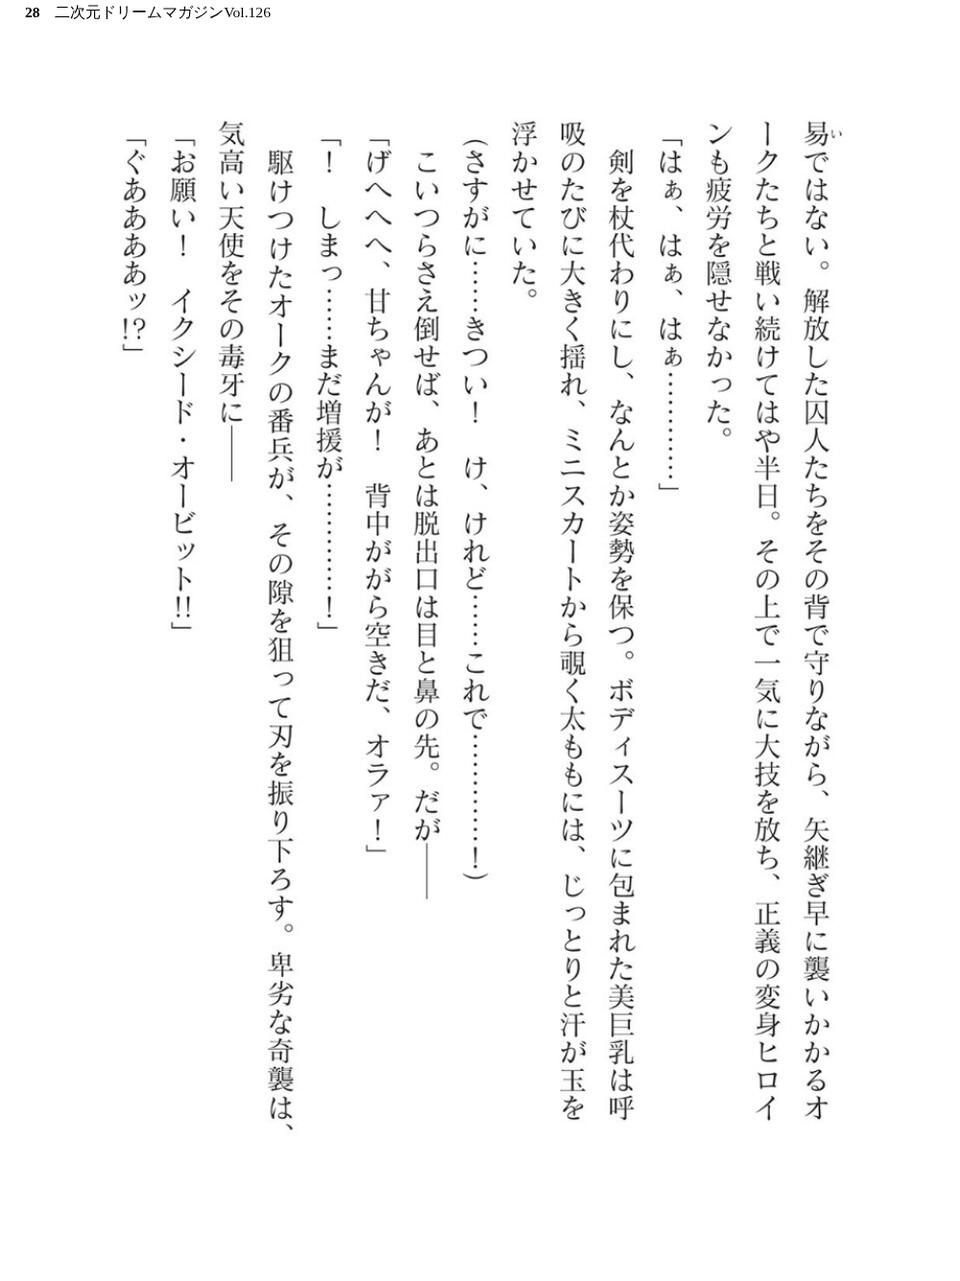 28 二次元ドリームマガジンVol.126
易ではない。解放した囚人たちをその背で守りながら、矢継ぎ早に襲いかかるオ
い
ークたちと戦い続けてはや半日。その上で一気に大技を放ち、正義の変身ヒロイ
ンも疲労を隠せなかった。
「はぁ、はぁ、はぁ…………」
　剣を杖代わりにし、なんとか姿勢を保つ。ボディスーツに包まれた美巨乳は呼
吸のたびに大きく揺れ、ミニスカートから覗く太ももには、じっとりと汗が玉を
浮かせていた。
(さすがに……きつい！　け、けれど……これで…………！)
　こいつらさえ倒せば、あとは脱出口は目と鼻の先。だが――
「げへへへ、甘ちゃんが！　背中ががら空きだ、オラァ！」
「！　しまっ……まだ増援が…………！」
　駆けつけたオークの番兵が、その隙を狙って刃を振り下ろす。卑劣な奇襲は、
気高い天使をその毒牙に――
「お願い！　イクシード・オービット!!」
「ぐああああッ!?」